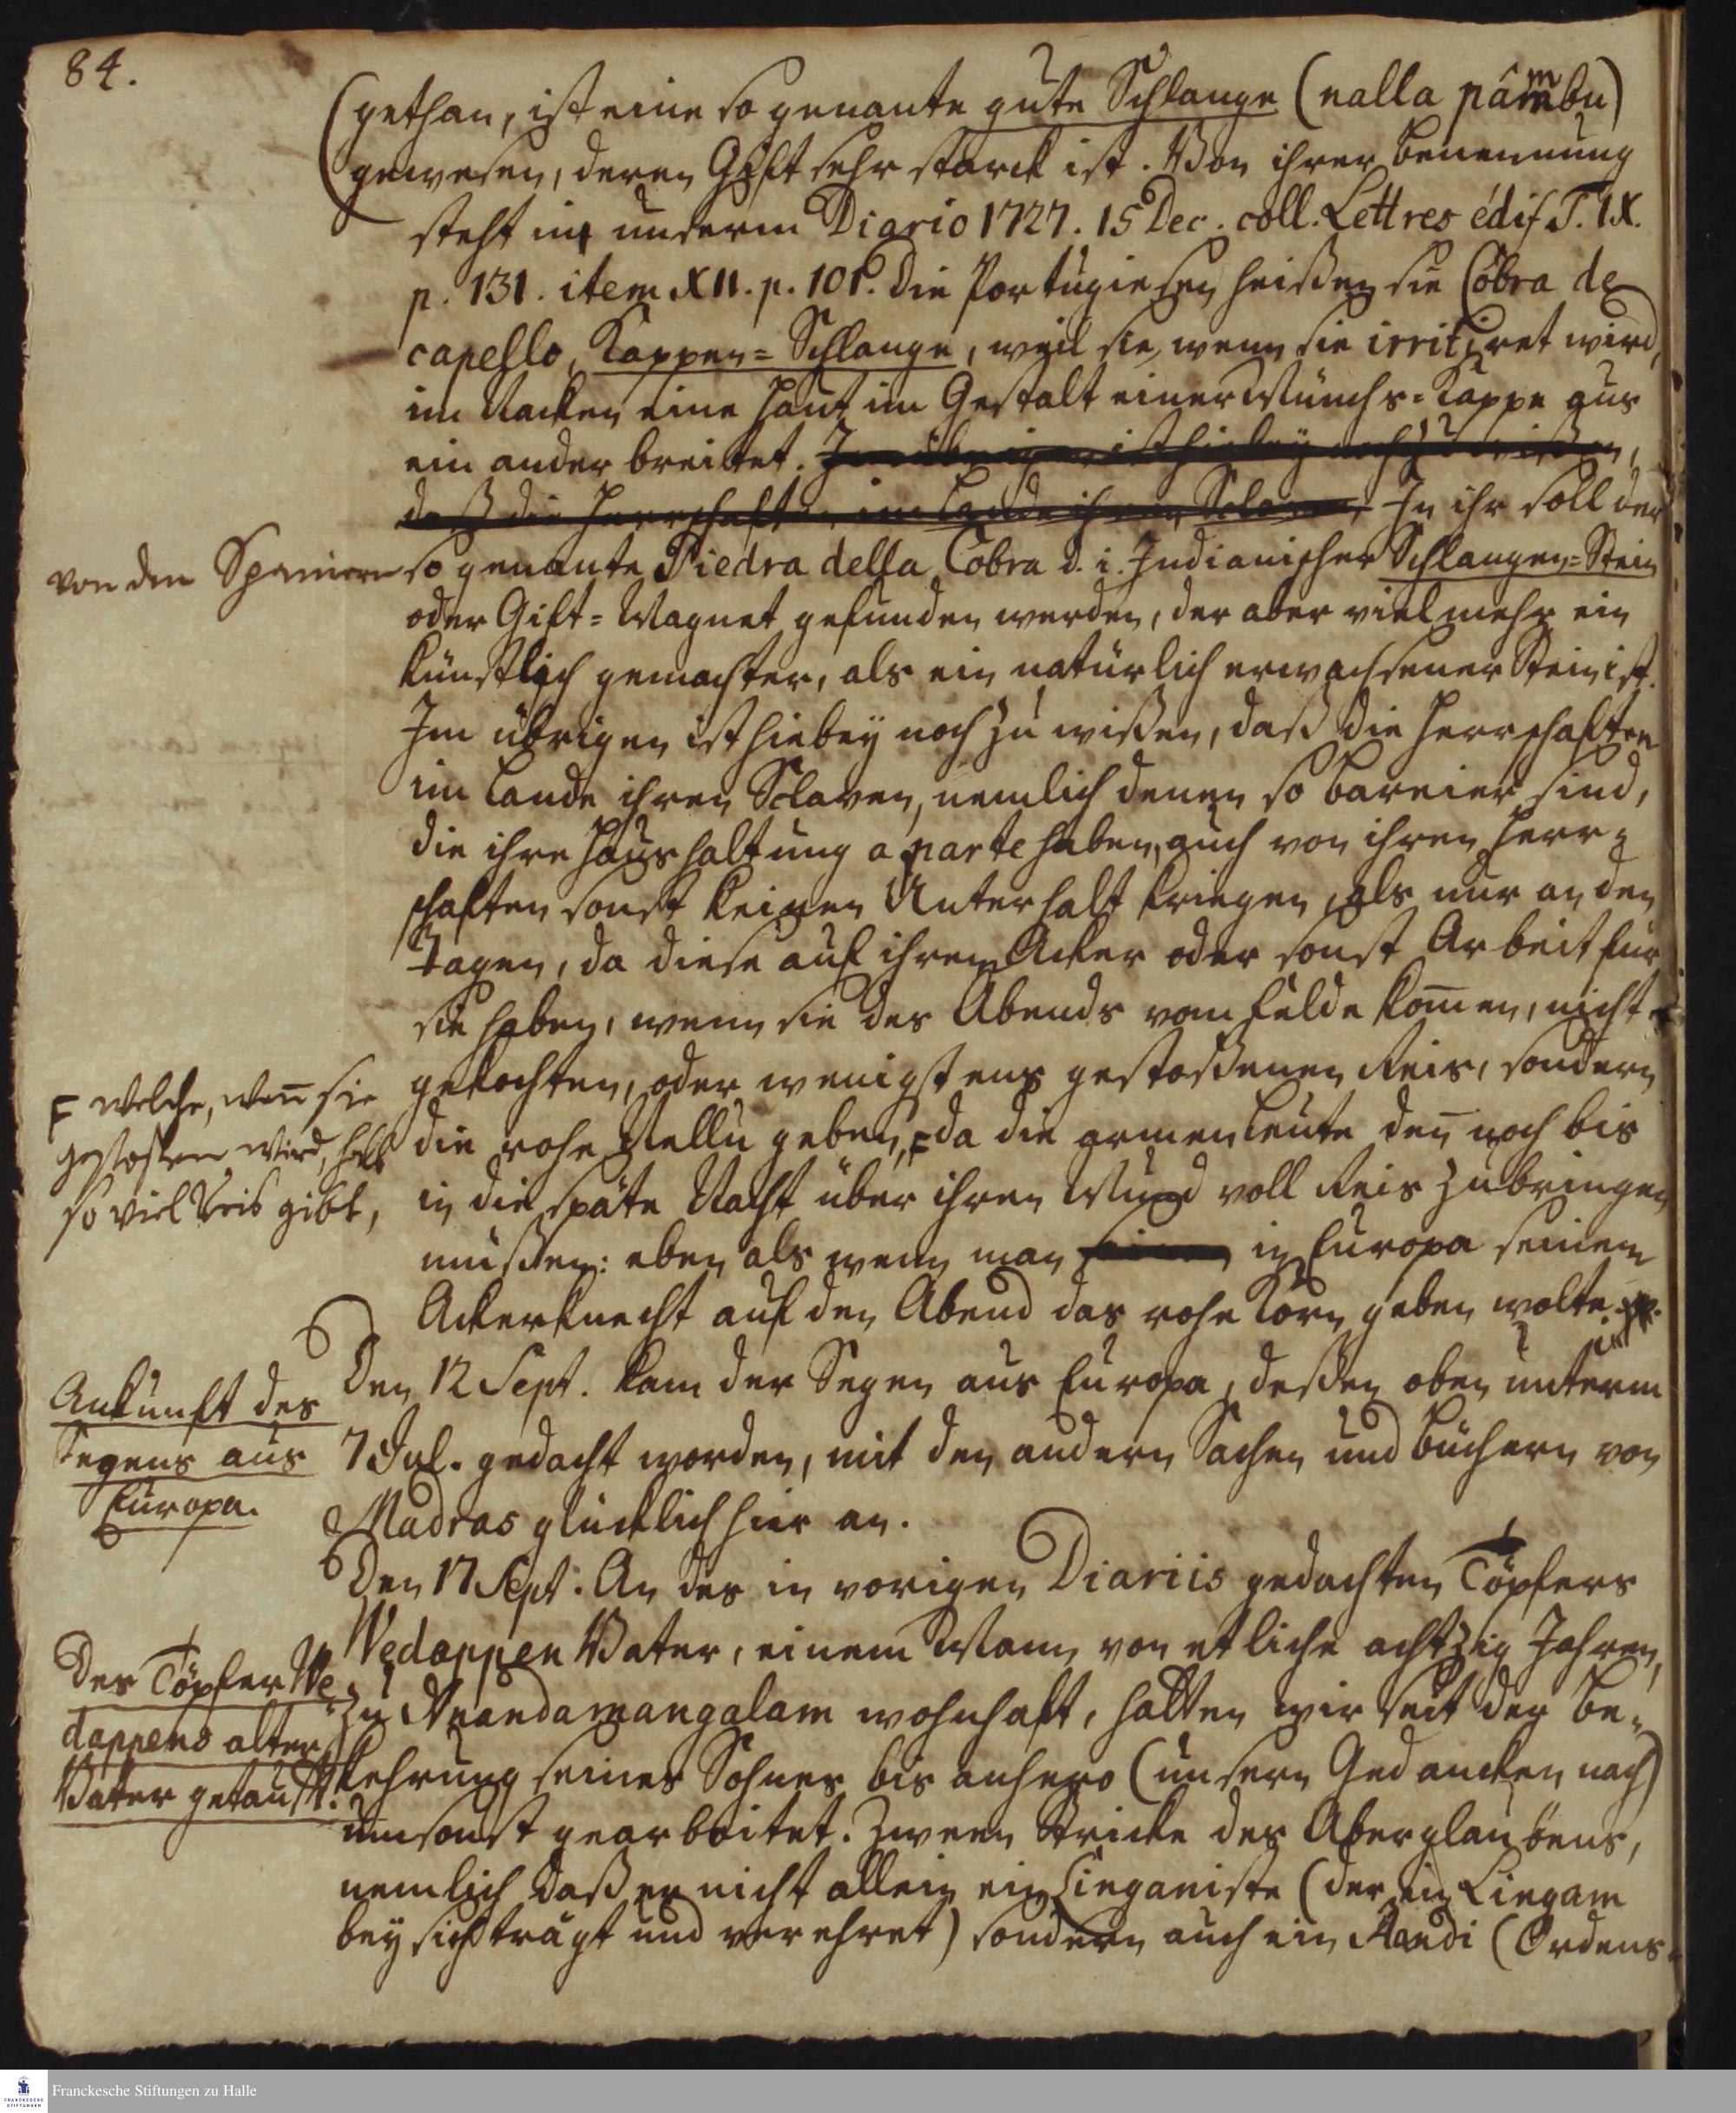 84.
(gethan, ist eine so genante gute Schlange (nalla pâmbu)
gewesen, deren Gift sehr starck ist. Von ihrer Benennung
steht in unserm Diario 1727. 15 Dec. coll. Lettres édif. T. IX.
p. 131. item XII. p. 101. Die Portugiesen heißen sie Cobra de
capello, Kappen=Schlange, weil sie, wenn sie irritiret wird,
im Nacken eine Haut im Gestalt einer Münchs=Kappe aus
ein ander breitet. Im übrigen ist hiebey noch zu wißen,
daß die Herrschaften im Lande ihren Sclaven, In ihr soll der
von den Spaniern
so genante Piedra della Cobra d. i. Indianischer Schlangen=Stein
oder Gift=Magnet gefunden werden, der aber vielmehr ein
künstlich gemachter, als ein natürlich erwachsener Stein ist.
Im übrigen ist hiebey noch zu wißen, daß die Herrschaften
im Lande ihren Sclaven, nemlich denen so Bareier sind,
die ihre Haushaltung a parte haben, auch von ihren Herr=
schaften sonst keinen Unterhalt kriegen, als nur an den
Tagen, da diese auf ihrem Acker oder sonst Arbeit für
sie haben, wenn sie des Abends vom Felde kom̅en, nicht
gekochten, oder wenigstens gestoßenen Reis, sondern
F welche, wen̅ sie
gestossen wird, halb
so viel Reis gibt,
die rohe Nellu geben, F da die armen Leute den̅ noch bis
in die späte Nacht über ihren Mund voll Reis zubringen
müßen: eben als wenn man in Europa seinem
Ackerknecht auf den Abend das rohe Korn geben wolte.
Ankunft des
Segens aus
Europa.
Den 12 Sept. kam der Segen aus Europa, deßen oben unterm
7 Jul. gedacht worden, mit den andern Sachen und Büchern von
Madras glücklich hier an.
Den 17 Sept. An des in vorigen Diariis gedachten Töpfers
Des Töpfer Ve=
dappens alter
Vater getauft.
Vedappen Vater, einem Mann von etliche achtzig Jahren,
zu Anandamangalam wohnhaft, hatten wir seit der Be=
kehrung seines Sohnes bis anhero (unsern Gedancken nach)
umsonst gearbeitet. Zween Stricke des Aberglaubens,
nemlich daß er nicht allein ein Linganiste (der ein Lingam
bey sich trägt und verehret) sondern auch ein Aandi (Ordens=
Franckesche Stiftungen zu Halle